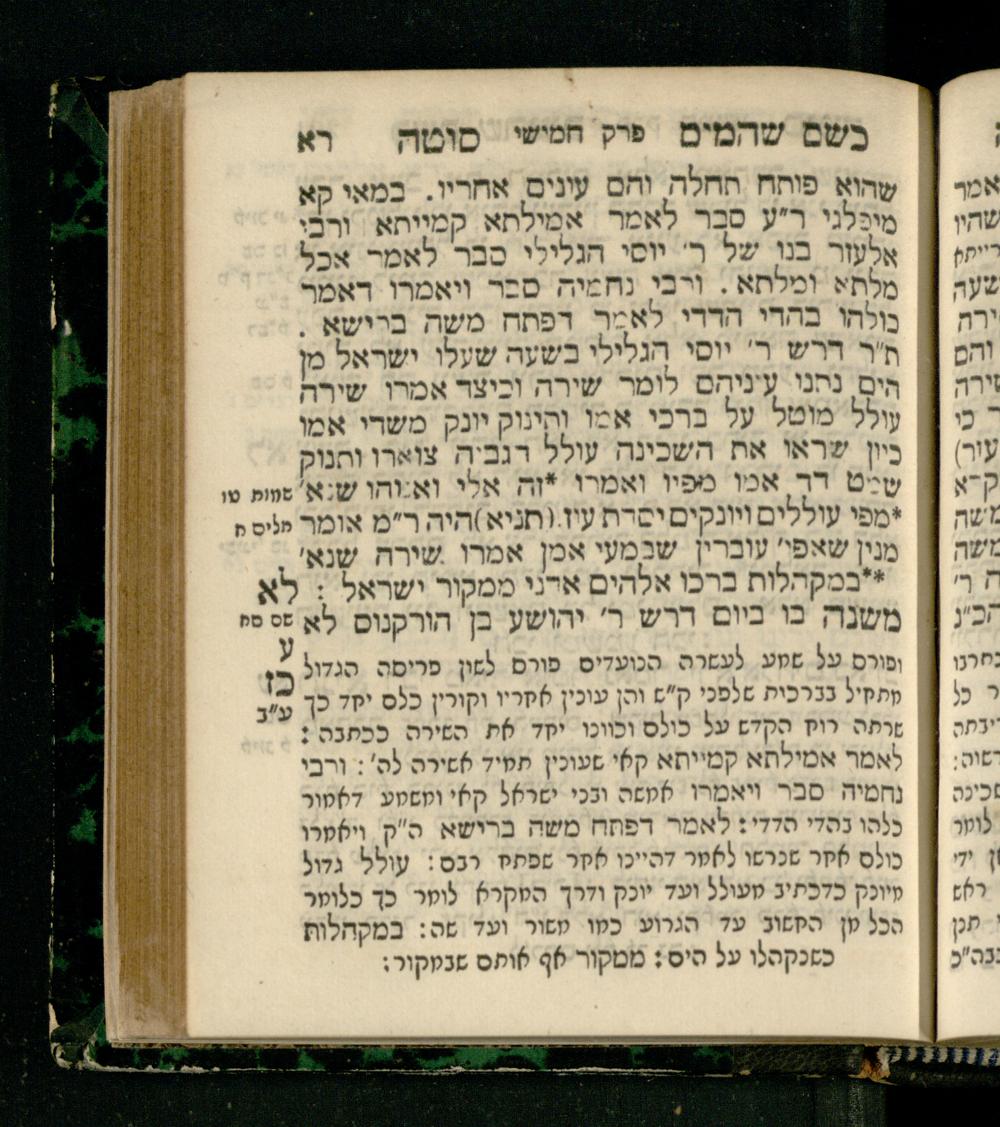 כשם שהמים פרק חמישי סוטה רא
שהוא פותח תחלה והם עונים אחריו. במאי קא
מיפלגי ר"ע סבר לאמר אמילתא קמייתא ורבי
אלעזר בנו של ר' יוסי הגלילי סבר לאמר אכל
מלתא ומלתא. ורבי נחמיה סבר ויאמרו דאמר
כולהו בהדי הדדי לאמר דפתח משה ברישא.
ת"ר דרש ר' יוסי הגלילי בשעה שעלו ישראל מן
הים נתנו עיניהם לומר שירה וכיצד אמרו שירה
עולל מוטל על ברכי אמו ותינוק יונק משדי אמו
כיון שראו את השכינה עולל הגביה צוארו ותנוק
שמט דד אמו מפיו ואמרו *זה אלי ואנוהו שנא'
שמות טו
*מפי עוללים ויונקים יסדת עוז. (תניא) היה ר"מ אומר
תלים ח
מנין שאפי' עוברין שבמעי אמן אמרו שירה שנא'
**במקהלות ברכו אלהים אדני ממקור ישראל :
לא
משנה בו ביום דרש ר' יהושע בן הורקנוס לא
שם סח
ע
כז
ע"ב
ופורס על שמע לעשרה הנועדים פורס לשון פריסה הגדול
מתחיל בברכות שלפני ק"ש והן עונין אחריו וקורין כלם יחד כך
שרתה רוח הקדש על כולם וכוונו יחד את השירה ככתבה :
לאמר אמילתא קמייתא קאי שעונין תמיד אשירה לה' : ורבי
נחמיה סבר ויאמרו אמשה ובני ישראל קאי ומשמע דאמור
כלהו בהדי הדדי : לאמר דפתח משה ברישא ה"ק ויאמרו
כולם אחר שנרשו לאמר דהיינו אחר שפתח רבם : עולל גדול
מיונק כדכתיב מעולל ועד יונק ודרך המקרא לומר כך כלומר
הכל מן החשוב עד הגרוע כמו משור ועד שה : במקהלות
כשנקהלו על הים : ממקור אף אותם שבמקור :
אמר
שהיו
שעה
והם
שירה
כי
משה
משה
ר'
כל
שכינה
לומר
ידי
ראש
תנן